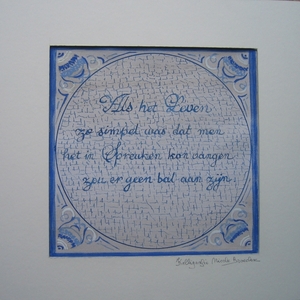 Als het Leven
zo simpel was dat men
het in Spreuken kon vangen
zou er geen bal aan zijn.